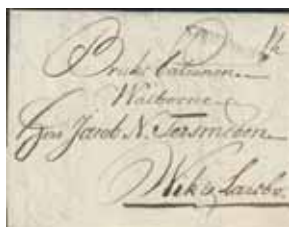 Bruks Patronen
Walborne
Herr Jacob N. Tersmeden
Wik & Larsbo